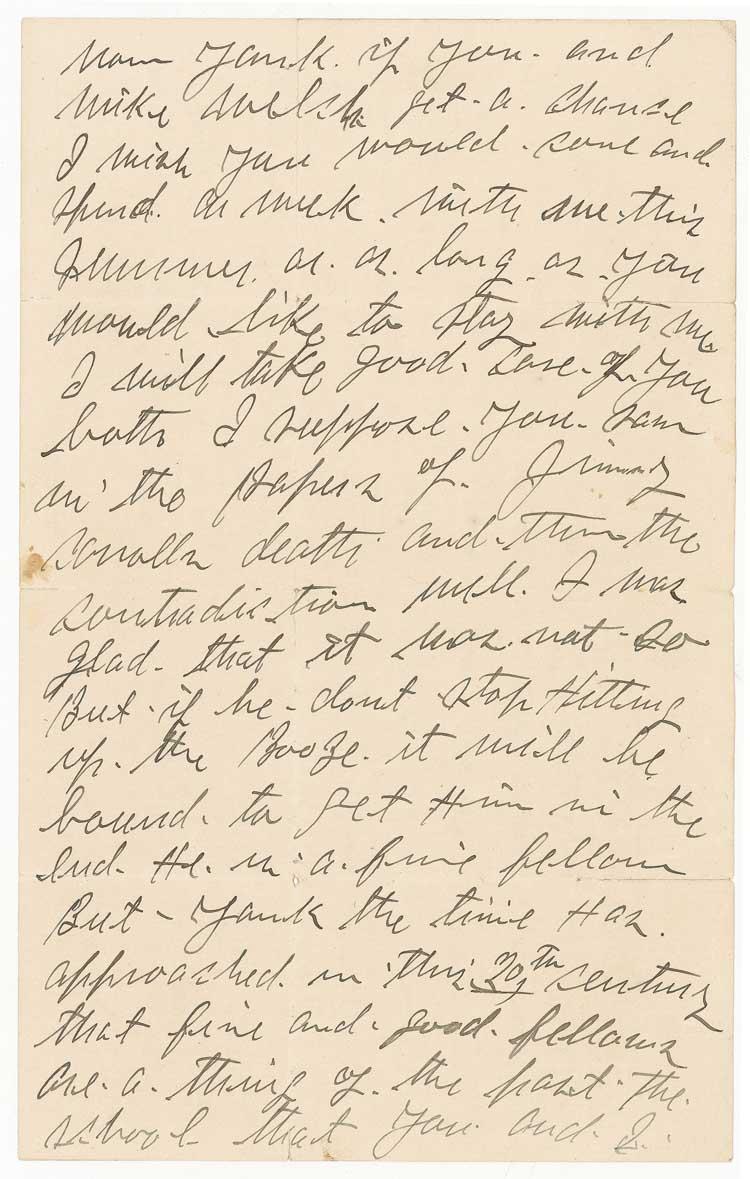 now Yank. if you. and
Mike Welsh get. a. chance
I wish you would. come and.
spend. a week. with me. this
summer. or. as. long. as. you
would like to stay with me
I will take good. care. of. you
both I suppose. you. saw
in the papers of. Jimmy
Carrolls death and. then the
contradiction well. I was
glad. that it was. not. so
But. if he. dont stop Hitting
up. the Booze. it will be
bound. to get Him in the
end. He. is. a. fine fellow
But - Yank the time Has.
approached. in this 20th century
that fine and. good. fellows
are. a. thing of. the past. the.
school that you and. I.